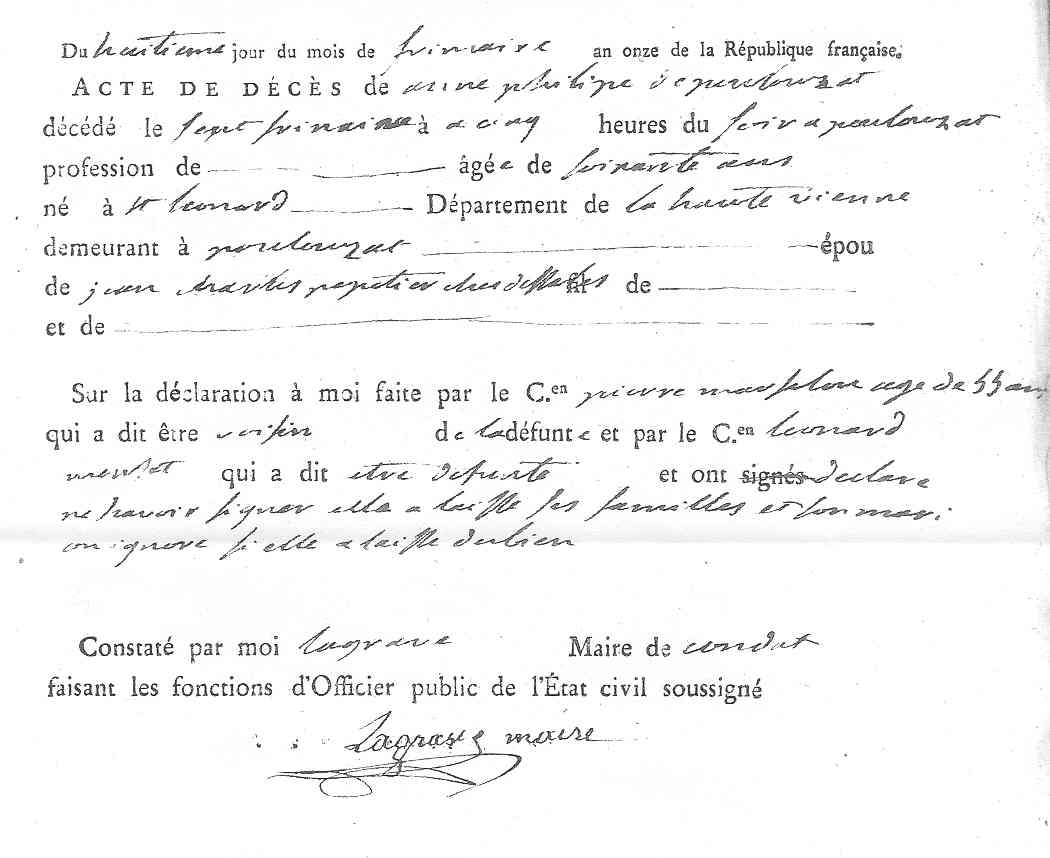 Du huitieme jour du mois de frimaire an onze de la République française.
ACTE DE DÉCÈS de anne philipe de poulouzat
décédé le sept frimaire à a cinq heures du soir a poulouzat
profession de âgée de soixante ans
né à st leonard Département de la haute vienne
demeurant à poulouzat épou
de jean charles papetier de
et de
Sur la déclaration à moi faite par le C.en pierre age de 55 ans
qui a dit être voisin de la défunte et par le C.en leonard
qui a dit etre defunte et ont signés declare
ne savoir signer elle a laisse ses familles et son mari
on ignore si elle a laisse du bien
Constaté par moi lagrave Maire de condat
faisant les fonctions d'Officier public de l'État civil soussigné
Lagrave maire